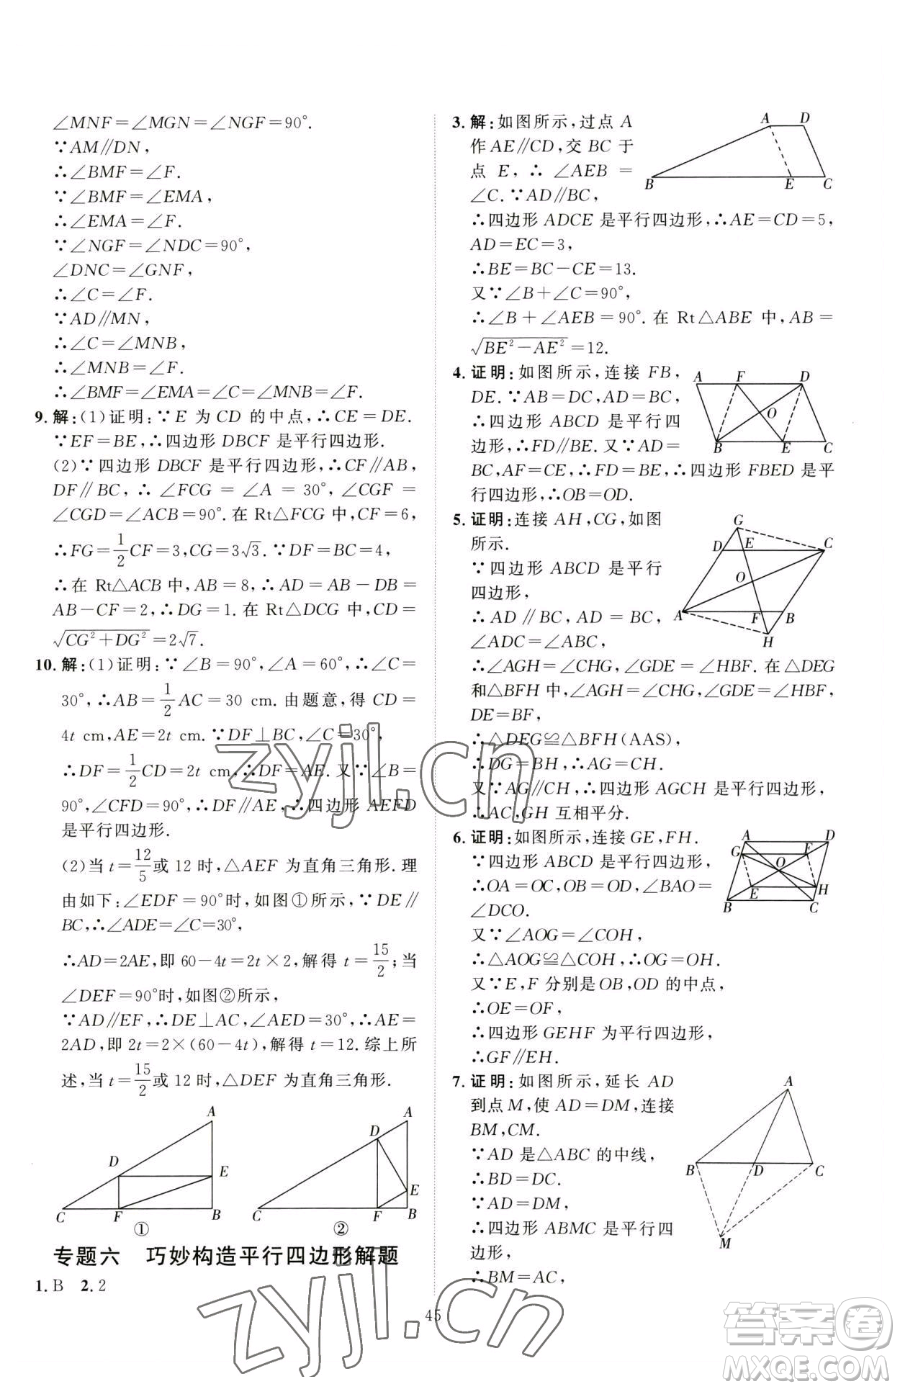 ∠MNF=∠MGN=∠NGF=90°.
∵AM∥DN,
∴∠BMF=∠F.
∵∠BMF=∠EMA,
∴∠EMA=∠F.
∵∠NGF=∠NDC=90°,
∠DNC=∠GNF,
∴∠C=∠F.
∵AD∥MN,
∴∠C=∠MNB,
∴∠MNB=∠F.
∴∠BMF=∠EMA=∠C=∠MNB=∠F.
9.解:(1)证明:∵E 为 CD 的中点,∴CE=DE.
∵EF=BE,∴四边形 DBCF 是平行四边形.
(2)∵四边形 DBCF 是平行四边形,∴CF∥AB,
DF∥BC,∴∠FCG=∠A=30°,∠CGF=
∠CGD=∠ACB=90°.在 Rt△FCG 中,CF=6,
∴FG=1/2CF=3,CG=3√3.∵DF=BC=4,
∴在 Rt△ACB 中,AB=8,∴AD=AB-DB=
AB-CF=2,∴DG=1.在 Rt△DCG 中,CD=
√(CG²+DG²)=2√7.
10.解:(1)证明:∵∠B=90°,∠A=60°,∴∠C=
30°,∴AB=1/2AC=30 cm.由题意,得 CD=
4t cm,AE=2t cm.∵DF⊥BC,∠C=30°,
∴DF=1/2CD=2t cm,∴DF=AE.又∵∠B=
90°,∠CFD=90°,∴DF∥AE,∴四边形 AEFD
是平行四边形.
(2)当 t=12/5或 12 时,△AEF 为直角三角形.理
由如下:∠EDF=90°时,如图①所示,∵DE∥
BC,∴∠ADE=∠C=30°,
∴AD=2AE,即 60-4t=2t×2,解得 t=15/2;当
∠DEF=90°时,如图②所示,
∵AD∥EF,∴DE⊥AC,∠AED=30°,∴AE=
2AD,即 2t=2×(60-4t),解得 t=12.综上所
述,当 t=15/2或 12 时,△DEF 为直角三角形.
A
D
E
C
F
B
①
A
D
E
C
F
B
②
专题六 巧妙构造平行四边形解题
1.B 2.2
3.解:如图所示,过点 A
作 AE∥CD,交 BC 于
点 E,∴∠AEB=
∠C.∵AD∥BC,
∴四边形 ADCE 是平行四边形,∴AE=CD=5,
AD=EC=3,
∴BE=BC-CE=13.
又∵∠B+∠C=90°,
∴∠B+∠AEB=90°.在 Rt△ABE 中,AB=
√(BE²-AE²)=12.
A
D
B
E
C
4.证明:如图所示,连接 FB,
DE.∵AD=BC,AF=CE,
∴四边形 ABCD 是平行四
边形,∴FD∥BE.又∵AD=
BC,AF=CE,∴四边形 FBED 是平
行四边形,∴OB=OD.
A
F
D
O
B
E
C
5.证明:连接 AH,CG,如图
所示.
∵四边形 ABCD 是平行
四边形,
∴AD∥BC,∠DAC=
∠ACB,
∴∠AGH=∠CHG.在△DEG
和△BFH 中,∠AGH=∠CHG,∠DEG=∠BFH,
DE=BF,
∴△DEG≌△BFH(AAS),
∴DG=BH,∴AG=CH.
又∵AG∥CH,∴四边形 AGCH 是平行四边形,
∴AC,GH 互相平分.
G
D
E
C
O
A
F
B
H
6.证明:如图所示,连接 GE,FH.
∵四边形 ABCD 是平行四边形,
∴OA=OC,OB=OD,∠BAO=
∠DCO.
又∵∠AOG=∠COH,
∴△AOG≌△COH,∴OG=OH.
又∵E,F 分别是 OB,OD 的中点,
∴OE=OF,
∴四边形 GEHF 为平行四边形,
∴GF∥EH.
A
D
G
F
O
E
H
B
C
7.证明:如图所示,延长 AD
到点 M,使 AD=DM,连接
BM,CM.
∵AD 是△ABC 的中线,
∴BD=DC.
∵AD=DM,
∴四边形 ABMC 是平行
四边形,
∴BM=AC,
A
B
D
C
M
45
zyjl.cn
zyjl.cn
答案圈
MXQE.COM